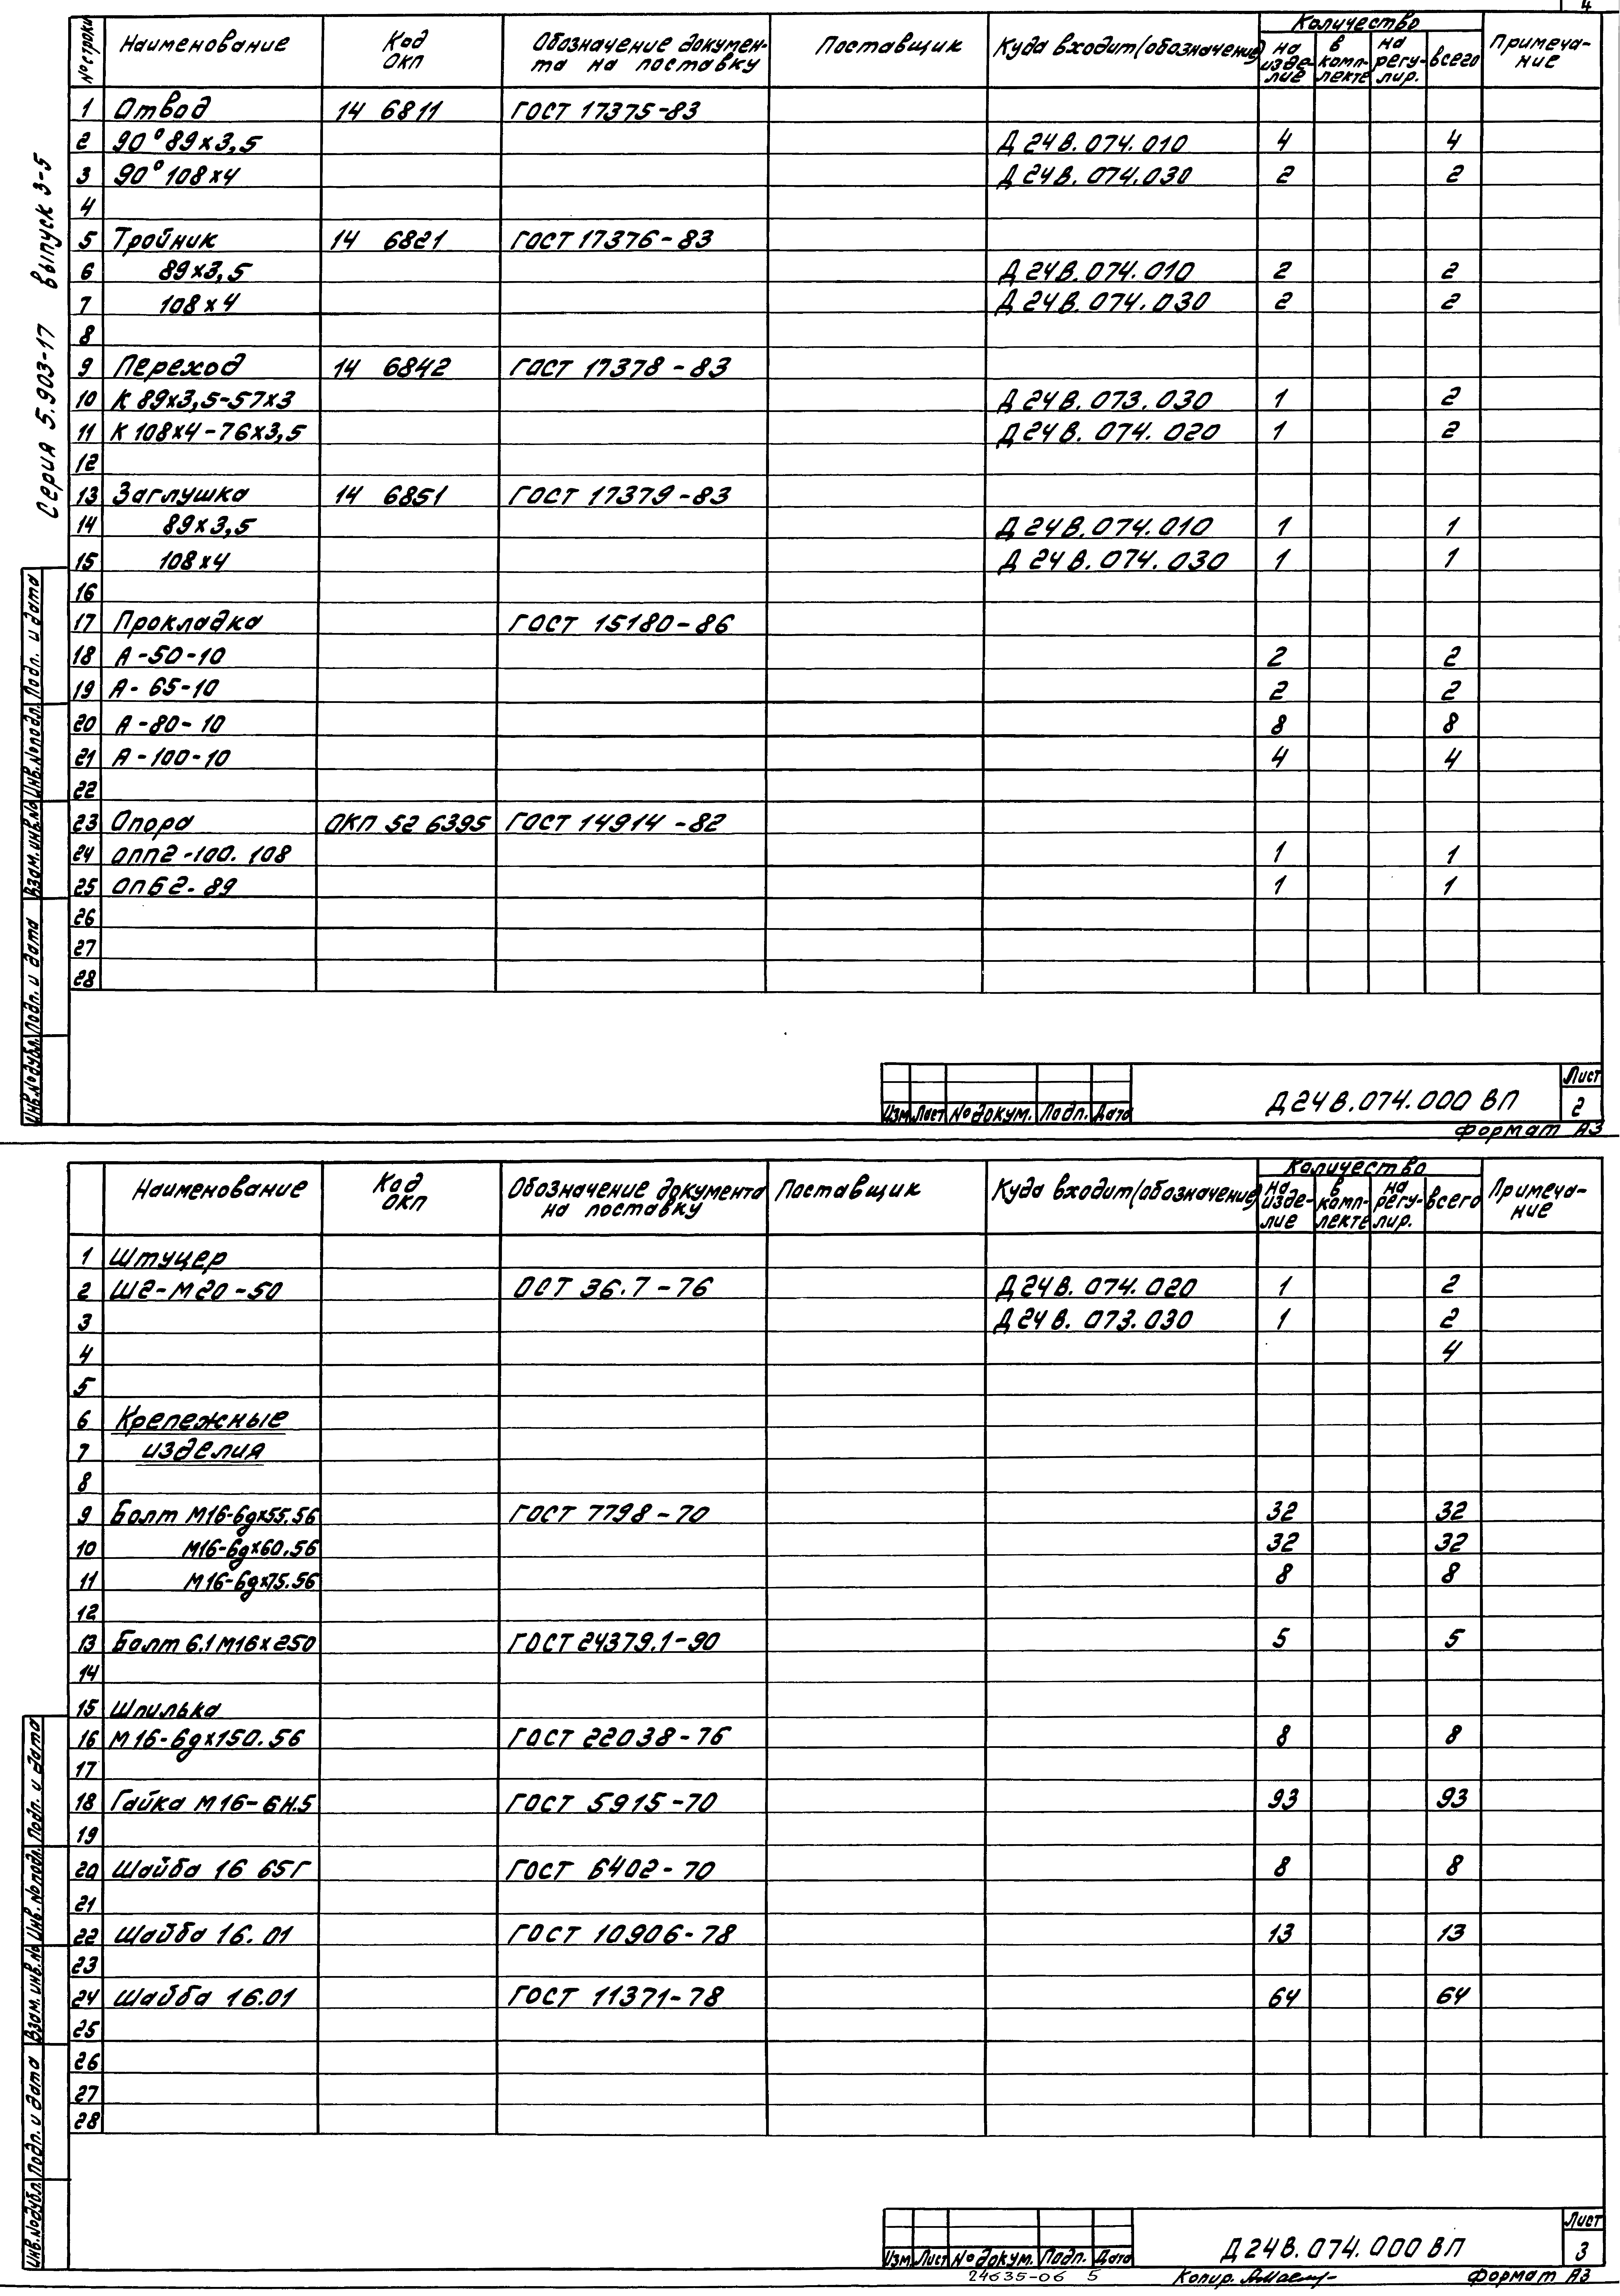 4
№ строки Наименование Код ОКП Обозначение докумен-та на поставку Поставщик Куда входит (обозначение) Количество на изде-лие в комп-лекте на регу-лир. всего Примеча-ние
1 Отвод 14 6811 ГОСТ 17375-83
2 90° 89х3,5 Д24В.074.010 4 4
3 90° 108х4 Д24В.074.030 2 2
4
5 Тройник 14 6821 ГОСТ 17376-83
6 89х3,5 Д24В.074.010 2 2
7 108х4 Д24В.074.030 2 2
8
9 Переход 14 6842 ГОСТ 17378-83
10 К 89х3,5-57х3 Д24В.073.030 1 2
11 К 108х4-76х3,5 Д24В.074.020 1 2
12
13 Заглушка 14 6851 ГОСТ 17379-83
14 89х3,5 Д24В.074.010 1 1
15 108х4 Д24В.074.030 1 1
16
17 Прокладка ГОСТ 15180-86
18 А-50-10 2 2
19 А-65-10 2 2
20 А-80-10 8 8
21 А-100-10 4 4
22
23 Опора ОКП 52 6395 ГОСТ 14914-82
24 ОПП2-100.108 1 1
25 ОПБ2-89 1 1
26
27
28
Серия 5.903-17 выпуск 3-5
Инв.№дубл. Подп. и дата Взам.инв.№ Инв.№подл. Подп. и дата
Изм Лист № докум. Подп. Дата
Д24В.074.000 ВП
Лист
2
Формат А3
Наименование Код ОКП Обозначение документа на поставку Поставщик Куда входит (обозначение) Количество на изде-лие в комп-лекте на регу-лир. всего Примеча-ние
1 Штуцер
2 Ш2-М20-50 ОСТ 36.7-76 Д24В.074.020 1 2
3 Д24В.073.030 1 2
4 4
5
6 Крепежные
7 изделия
8
9 Болт М16-6gх55.56 ГОСТ 7798-70 32 32
10 М16-6gх60.56 32 32
11 М16-6gх75.56 8 8
12
13 Болт 6.1М16х250 ГОСТ 24379.1-90 5 5
14
15 Шпилька
16 М16-6gх150.56 ГОСТ 22038-76 8 8
17
18 Гайка М16-6Н.5 ГОСТ 5915-70 93 93
19
20 Шайба 16 65Г ГОСТ 6402-70 8 8
21
22 Шайба 16.01 ГОСТ 10906-78 13 13
23
24 Шайба 16.01 ГОСТ 11371-78 64 64
25
26
27
28
Инв.№дубл. Подп. и дата Взам.инв.№ Инв.№подл. Подп. и дата
Изм Лист № докум. Подп. Дата
Д24В.074.000 ВП
Лист
3
24635-06 5
Копир.
Формат А3